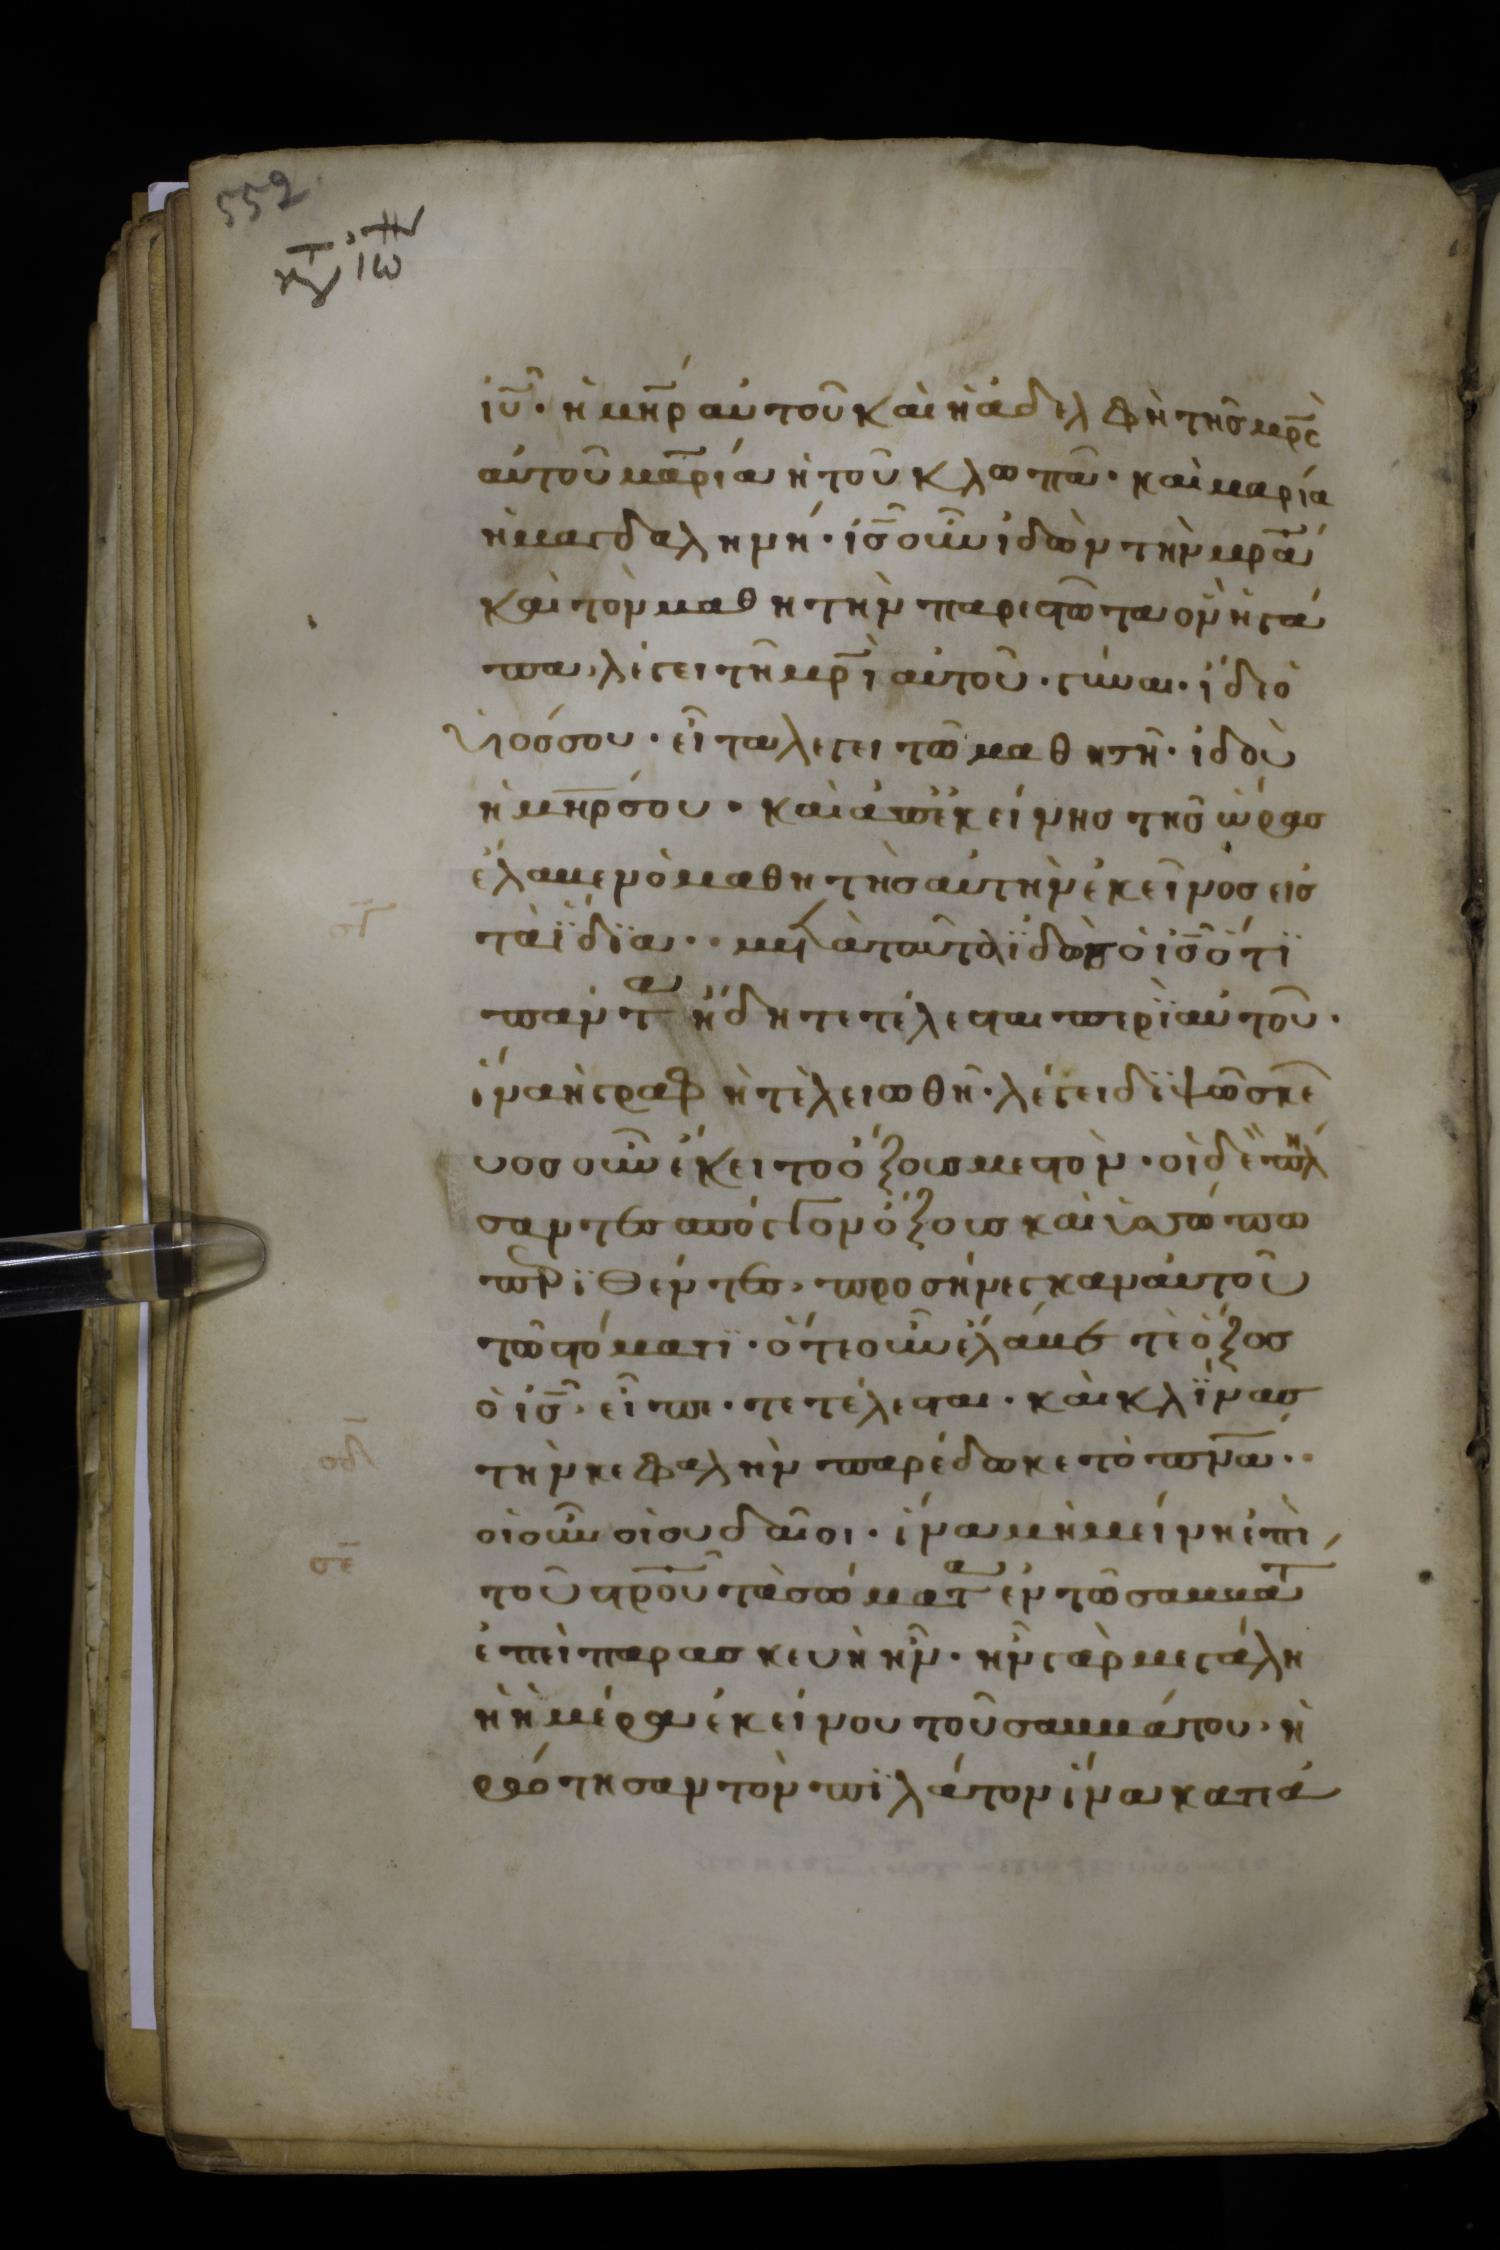 552
ἰῦ · ἡ μη̅ρ αὐτοῦ καὶ ἡ ἀδελφὴ τῆς μρ̅ς
αὐτοῦ μαρία ἡ τοῦ κλωπᾶ · καὶ μαρία
ἡ μαγδαληνή · ἰς̅ οὖν ἰδὼν τὴν μρ̅α
καὶ τὸν μαθητὴν παρεστῶτα ὃν ἠγά
πα, λέγει τῆ μρ̅ι αὐτοῦ · γύναι · ἴδε ὁ
υἱός σου · εἶτα λέγει τῶ μαθητῆ · ἰδοὺ
ἡ μη̅ρ σου · καὶ ἀπ ἐκείνης τῆς ὥρας
ἔλαβεν ὁ μαθητὴς αὐτὴν ἐκεῖνος εἰς
τὰ ἴδϊα · μετὰ τοῦτο ἰδὼν ὁ ἰς̅ ὅτϊ
πάντα ἤδη τετέλεσται περὶ αὐτοῦ ·
ἵνα ἡ γραφὴ τελειωθῆ · λέγει διψῶ σκε
υος οὖν ἔκειτο ὄξους μεστὸν · οἱ δὲ πλή
σαντες σπόγγον ὄξους καὶ ὑσσώπω
περϊθέντες, προσήνεγκαν αὐτοῦ
τῶ στόματϊ · ὅτε οὖν ἔλαβε τὸ ὄξος
ὁ ἰς̅, εἶπε · τετέλεσται · καὶ κλίνας
τὴν κεφαλὴν παρέδωκε τὸ πν̅α ·
οἱ οὖν ἰουδαῖοι · ἵνα μὴ μείνη ἐπὶ
τοῦ στρο̅υ τὰ σώματα ἐν τῶ σαββάτ
ἐπεὶ παρασκευὴ ἦν · ἦν γὰρ μεγάλη
ἡ ἡμέρα ἐκείνου τοῦ σαββάτου, ἠ
ρώτησαν τὸν πϊλάτον ἵνα κατεά